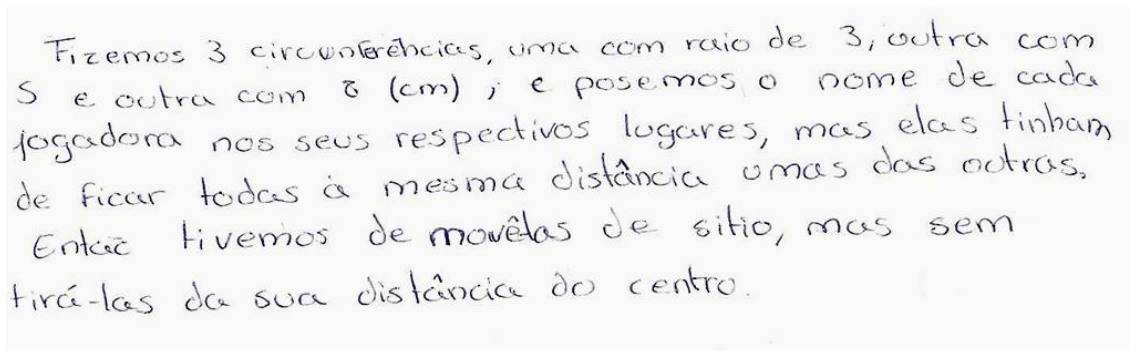 Fizemos 3 circunferências, uma com raio de 3, outra com
5 e outra com 8 (cm) ; e posemos o nome de cada
jogadora nos seus respectivos lugares, mas elas tinham
de ficar todas à mesma distância umas das outras.
Então tivemos de movêlas de sitio, mas sem
tirá-las da sua distância do centro.